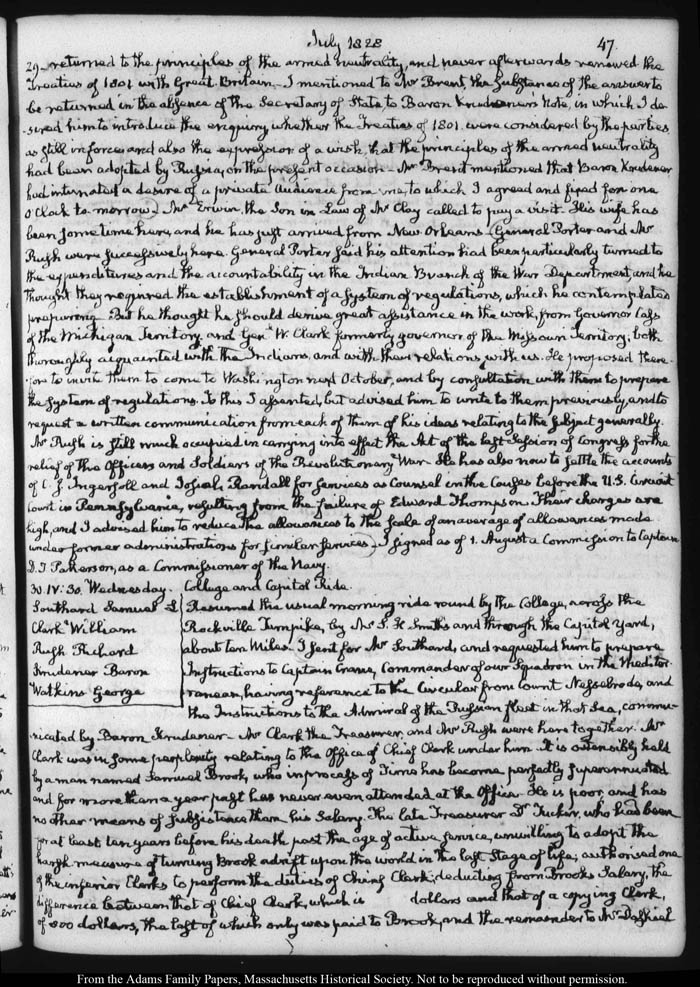 July 1828
47.
29. returned to the principles of the armed neutrality, and never afterwards renewed the
Treaties of 1801 with Great Britain. I mentioned to Mr Brent, the substance of the answer to
be returned in the absence of the Secretary of State to Baron Krudener's Note, in which I de-
sired him to introduce the enquiry whether the Treaties of 1801. were considered by the parties
as still in force, and also the expression of a wish, that the principles of the armed neutrality
had been adopted by Russia, on the present occasion. Mr Brent mentioned that Baron Krudener
had intimated a desire of a private audience from me, to which I agreed and fixed for one
O'Clock to-morrow. Mr Erwin, the Son in Law of Mr Clay called to pay a visit. His wife has
been some time here, and he has just arrived from New Orleans. General Porter and Mr
Rush were successively here. General Porter said his attention had been particularly turned to
the expenditures and the accountability in the Indian Branch of the War Department, and he
thought they required the establishment of a System of regulations, which he contemplates
preparing. But he thought he should derive great assistance in the work, from Governor Cass
of the Michigan Territory, and Genl W. Clark formerly governor of the Missouri Territory; both
thoroughly acquainted with the Indians, and with their relations with us. He proposed there-
fore to invite them to come to Washington next October, and by consultation with them to prepare
the System of regulations. To this I assented, but advised him to write to them previously, and to
request a written communication from each of them of his ideas relating to the subject generally.
Mr Rush is still much occupied in carrying into effect the Act of the last Session of Congress for the
relief of the Officers and Soldiers of the Revolutionary War. He has also now to settle the accounts
of C. J. Ingersoll and Josiah Randall for services as Counsel in the Causes before the U.S. Circuit
Court in Pennsylvania, resulting from the failure of Edward Thompson. Their charges are
high, and I advised him to reduce the allowances to the scale of an average of allowances made
under former administrations for similar services. I signed as of 1. August a Commission to Captain
D. T. Patterson, as a Commissioner of the Navy.
30. IV:30. Wednesday. College and Capitol Ride.
Southard Samuel L
Clark William
Rush Richard
Krudener Baron
Watkins George
Resumed the usual morning ride round by the College, across the
Rockville Turnpike, by Mr S. H. Smith's and through the Capitol yard,
about ten Miles. I sent for Mr Southard, and requested him to prepare
Instructions to Captain Crane, Commander of our Squadron in the Mediter-
ranean, having reference to the Circular from Count Nesselrode, and
the Instructions to the Admiral of the Russian fleet in that Sea, commu-
nicated by Baron Krudener. Mr Clark the Treasurer, and Mr Rush were here together. Mr
Clark was in some perplexity relating to the Office of Chief Clerk under him. It is ostensibly held
by a man named Samuel Brook, who in process of Time has become perfectly superannuated
and for more than a year past has never even attended at the Office. He is poor, and has
no other means of subsistence than his Salary. The late Treasurer Dr Tucker, who had been
for at least ten years before his death past the age of active service, unwilling to adopt the
harsh measure of turning Brook adrift upon the world in the last Stage of life, authorised one
of the inferior Clerks to perform the duties of Chief Clerk; deducting from Brook's Salary, the
difference between that of Chief Clerk, which is dollars and that of a copying Clerk,
of 800 dollars, the last of which only was paid to Brook, and the remainder to Mr
From the Adams Family Papers, Massachusetts Historical Society. Not to be reproduced without permission.